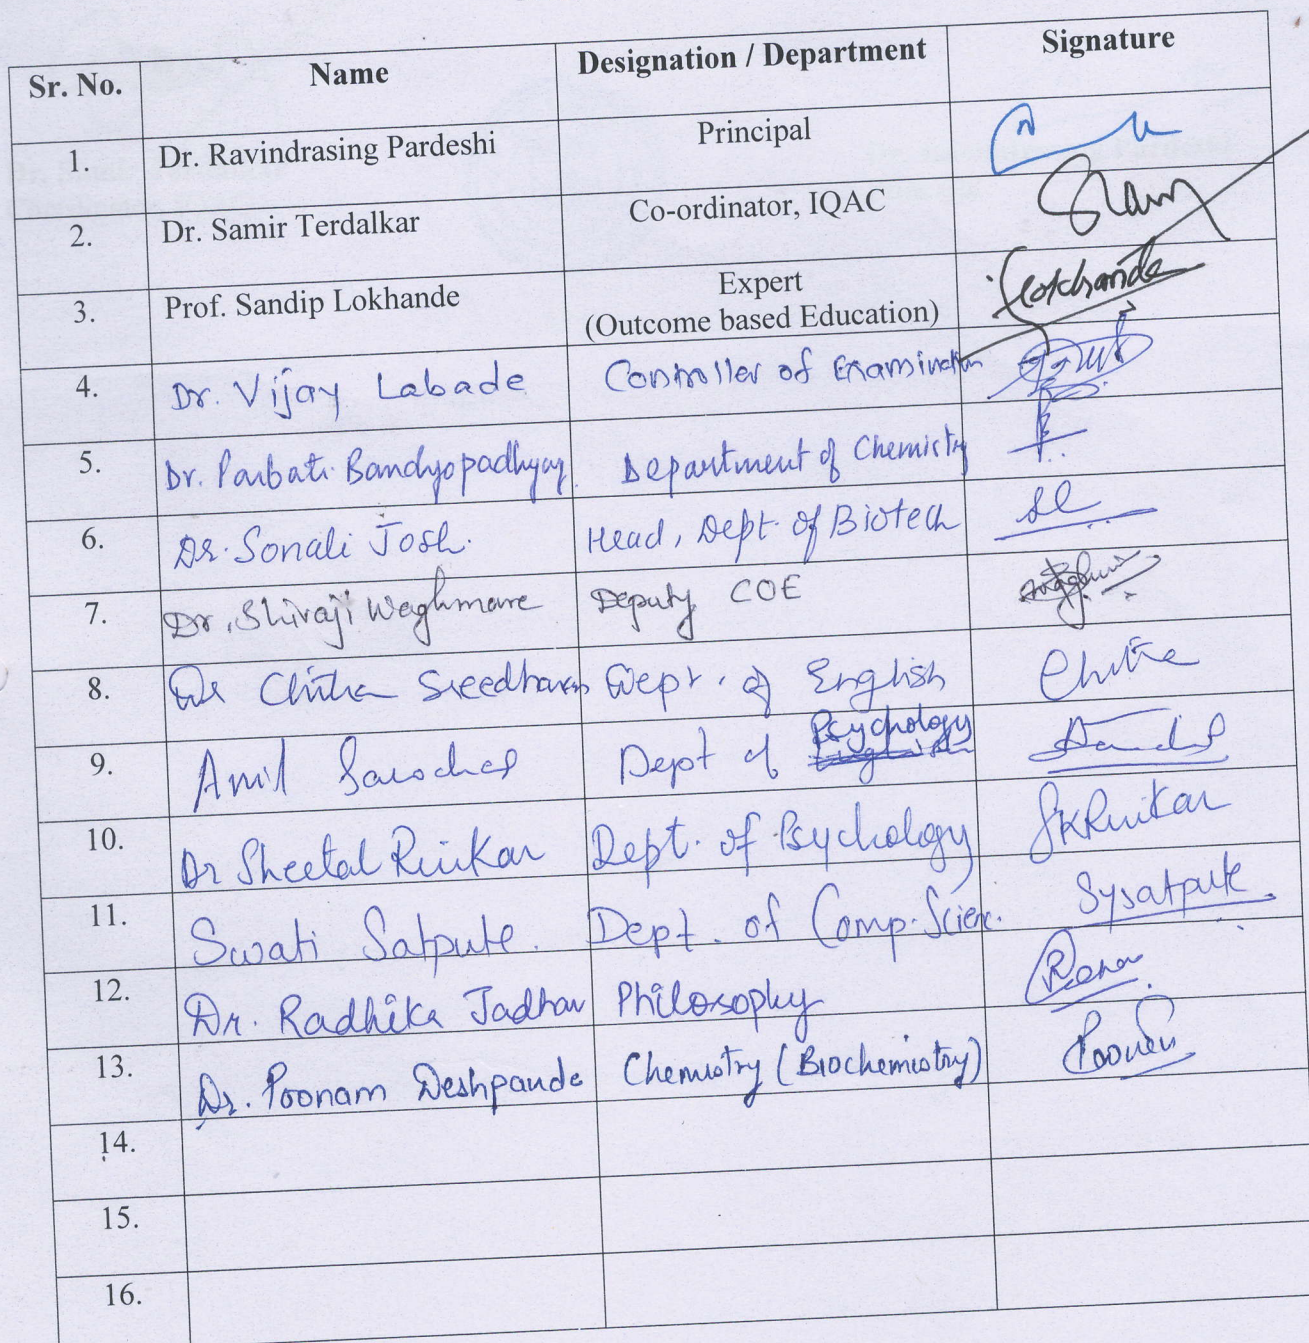 Sr. No. Name Designation / Department Signature
1. Dr. Ravindrasing Pardeshi Principal
2. Dr. Samir Terdalkar Co-ordinator, IQAC
3. Prof. Sandip Lokhande Expert Lokhande
(Outcome based Education)
4. Dr. Vijay Labade Controller of Examination
5. Dr. Parbati Bandyopadhyay Department of Chemistry
6. Dr. Sonali Joshi Head, Dept. of Biotech
7. Dr. Shivaji Waghmare Deputy COE
8. Dr Chitra Sreedharan Dept. of English Chitra
9. Anil Dept of Psychology
10. Dr Sheetal Ruikar Dept. of Psychology SKRuikar
11. Swati Satpute. Dept. of Comp. Scienc. Sysatpute
12. Dr. Radhika Jadhav Philosophy
13. Dr. Poonam Deshpande Chemistry (Biochemistry) Poonam
14.
15.
16.